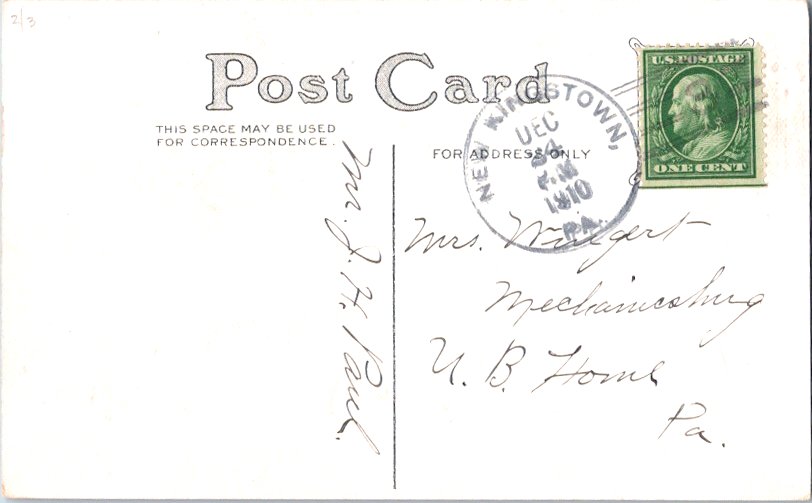 2/3
Post Card
THIS SPACE MAY BE USED
FOR CORRESPONDENCE.
FOR ADDRESS ONLY
NEW KINGSTOWN,
DEC
24
P.M
1910
PA.
U.S. POSTAGE
ONE CENT
Mrs. J. H. Paul.
Mrs. Wingert
Mechanicsburg
U. B. Home
Pa.